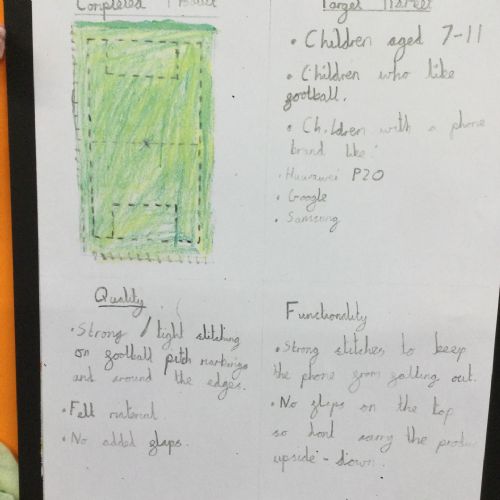 Completed Product
Target Market
• Children aged 7-11
• Children who like
football.
• Children with a phone
brand like:
• Huawei P20
• Google
• Samsung
Quality
• Strong / tight stitching
on football pitch markings
and around the edges.
• Felt material
• No added flaps.
Functionality
• Strong stitches to keep
the phone from falling out.
• No flaps on the top
so dont carry the
upside-down.